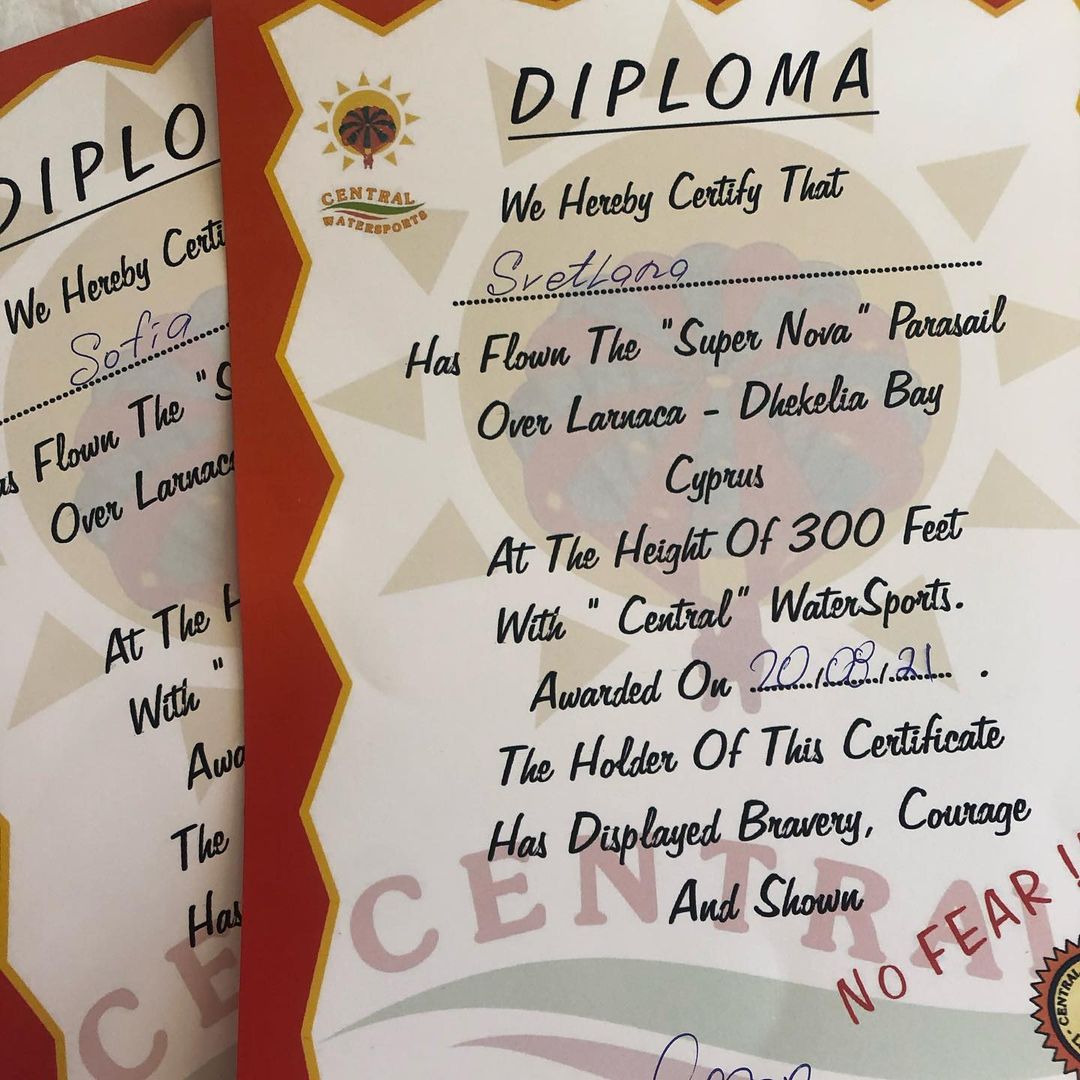 DIPLO
We Hereby Certi
Sofia
as Flown The "S
Over Larnaca
At The H
With "
Awa
The
Has
CE
DIPLOMA
CENTRAL
WATERSPORTS
We Hereby Certify That
Svetlana
Has Flown The "Super Nova" Parasail
Over Larnaca - Dhekelia Bay
Cyprus
At The Height Of 300 Feet
With " Central" WaterSports.
Awarded On 20/08/21 .
The Holder Of This Certificate
Has Displayed Bravery, Courage
And Shown
NO FEAR !!
CENTRAL
CENTRAL